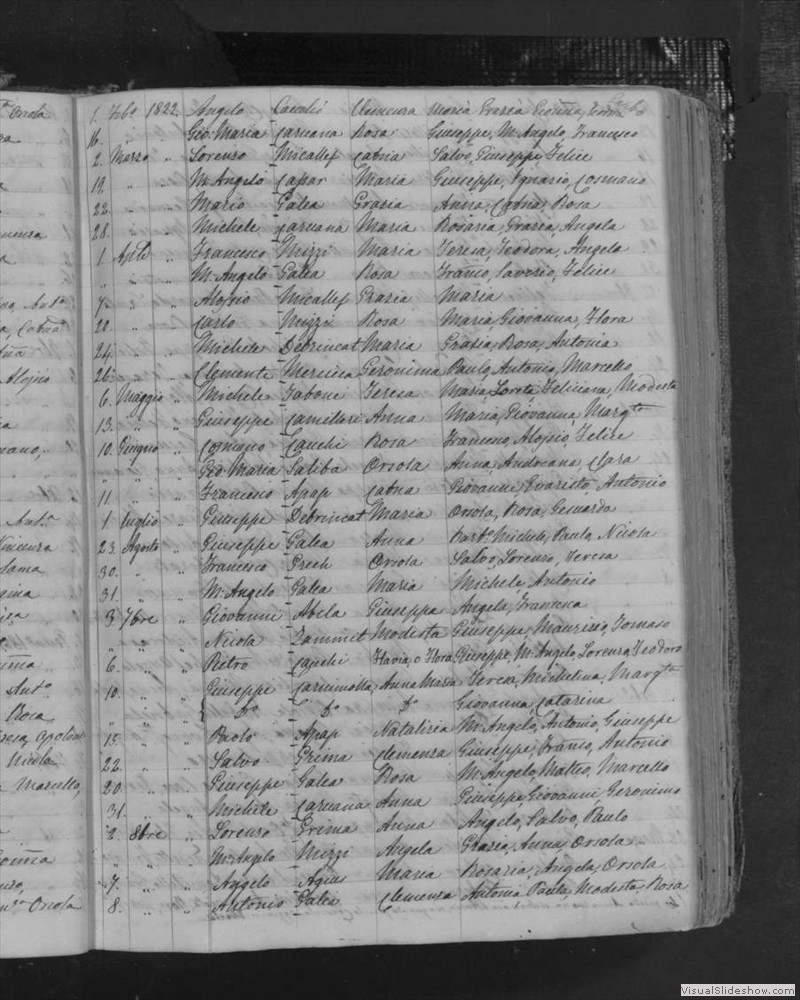 Orsola
1. Febo 1822 Angelo Cauchi Clemenza Maria Grazia Gioanna, Teodora
16. " " Gio: Maria Caruana Rosa Giuseppe, M. Angelo, Francesco
2. Marzo " Lorenzo Micallef Catna Salvo, Giuseppe, Felice
19. " " M. Angelo Caspar Maria Giuseppe, Ignazio, Cosmano
22. " " Mario Galea Grazia Anna, Catna, Rosa
28. " " Michele Caruana Maria Rosaria, Grazia, Angela
1. Aple " Francesco Mizzi Maria Teresa, Teodora, Angela
" " " M. Angelo Galea Rosa Franco, Saverio, Felice
7. " " Aloysio Micallef Grazia Maria
20. " " Carlo Mizzi Rosa Maria, Giovanna, Flora
24. " " Michele Debrincat Maria Grazia, Rosa, Antonia
26. " " Clemente Mercieca Geronima Paulo, Antonio, Marcello
6. Maggio " Michele Tabone Teresa Maria, Loreta, Feliciana, Modesta
13. " " Giuseppe Camilleri Anna Maria, Giovanna, Margta
10. Giugno " Cosmano Cauchi Rosa Francesco, Aloysio, Felice
" " " Gio: Maria Saliba Orsola Anna, Andreana, Clara
11 " " Francesco Apap Catna Giovanni, Evaristo, Antonio
1 Luglio " Giuseppe Debrincat Maria Orsola, Rosa, Gesuarda
23. Agosto " Giuseppe Galea Anna Michele, Paulo, Nicola
30. " " Francesco Grech Orsola Salvo, Lorenzo, Teresa
31. " " M. Angelo Galea Maria Michele, Antonio
3 7bre " Giovanni Abela Giuseppa Angela, Francesca
" " " Nicola Zammit Modesta Giuseppe, Maurizio, Tomaso
6. " " Pietro Cauchi Flavia, o Flora Giuseppe, M. Angelo, Lorenzo, Teodoro
10. " " Giuseppe Anna Maria Teresa, Michelina, Margta
" " " { Do Do Do Giovanna, Catarina
13. " " Paolo Apap Natalizia M. Angelo, Antonio, Giuseppe
22. " " Salvo Grima Clemenza Giuseppe, Franco, Antonio
20. " " Giuseppe Galea Rosa M. Angelo, Matteo, Marcello
31. " " Michele Caruana Anna Giuseppe, Giovanni, Geronimo
2. 8bre " Lorenzo Grima Anna Angelo, Salvo, Paulo
" " " M. Angelo Mizzi Angela Grazia, Anna, Orsola
7. " " Angelo Agius Maria Rosaria, Angela, Orsola
8. " " Antonio Galea Clemenza Antonia, Paula, Modesta, Rosa
VisualSlideshow.com